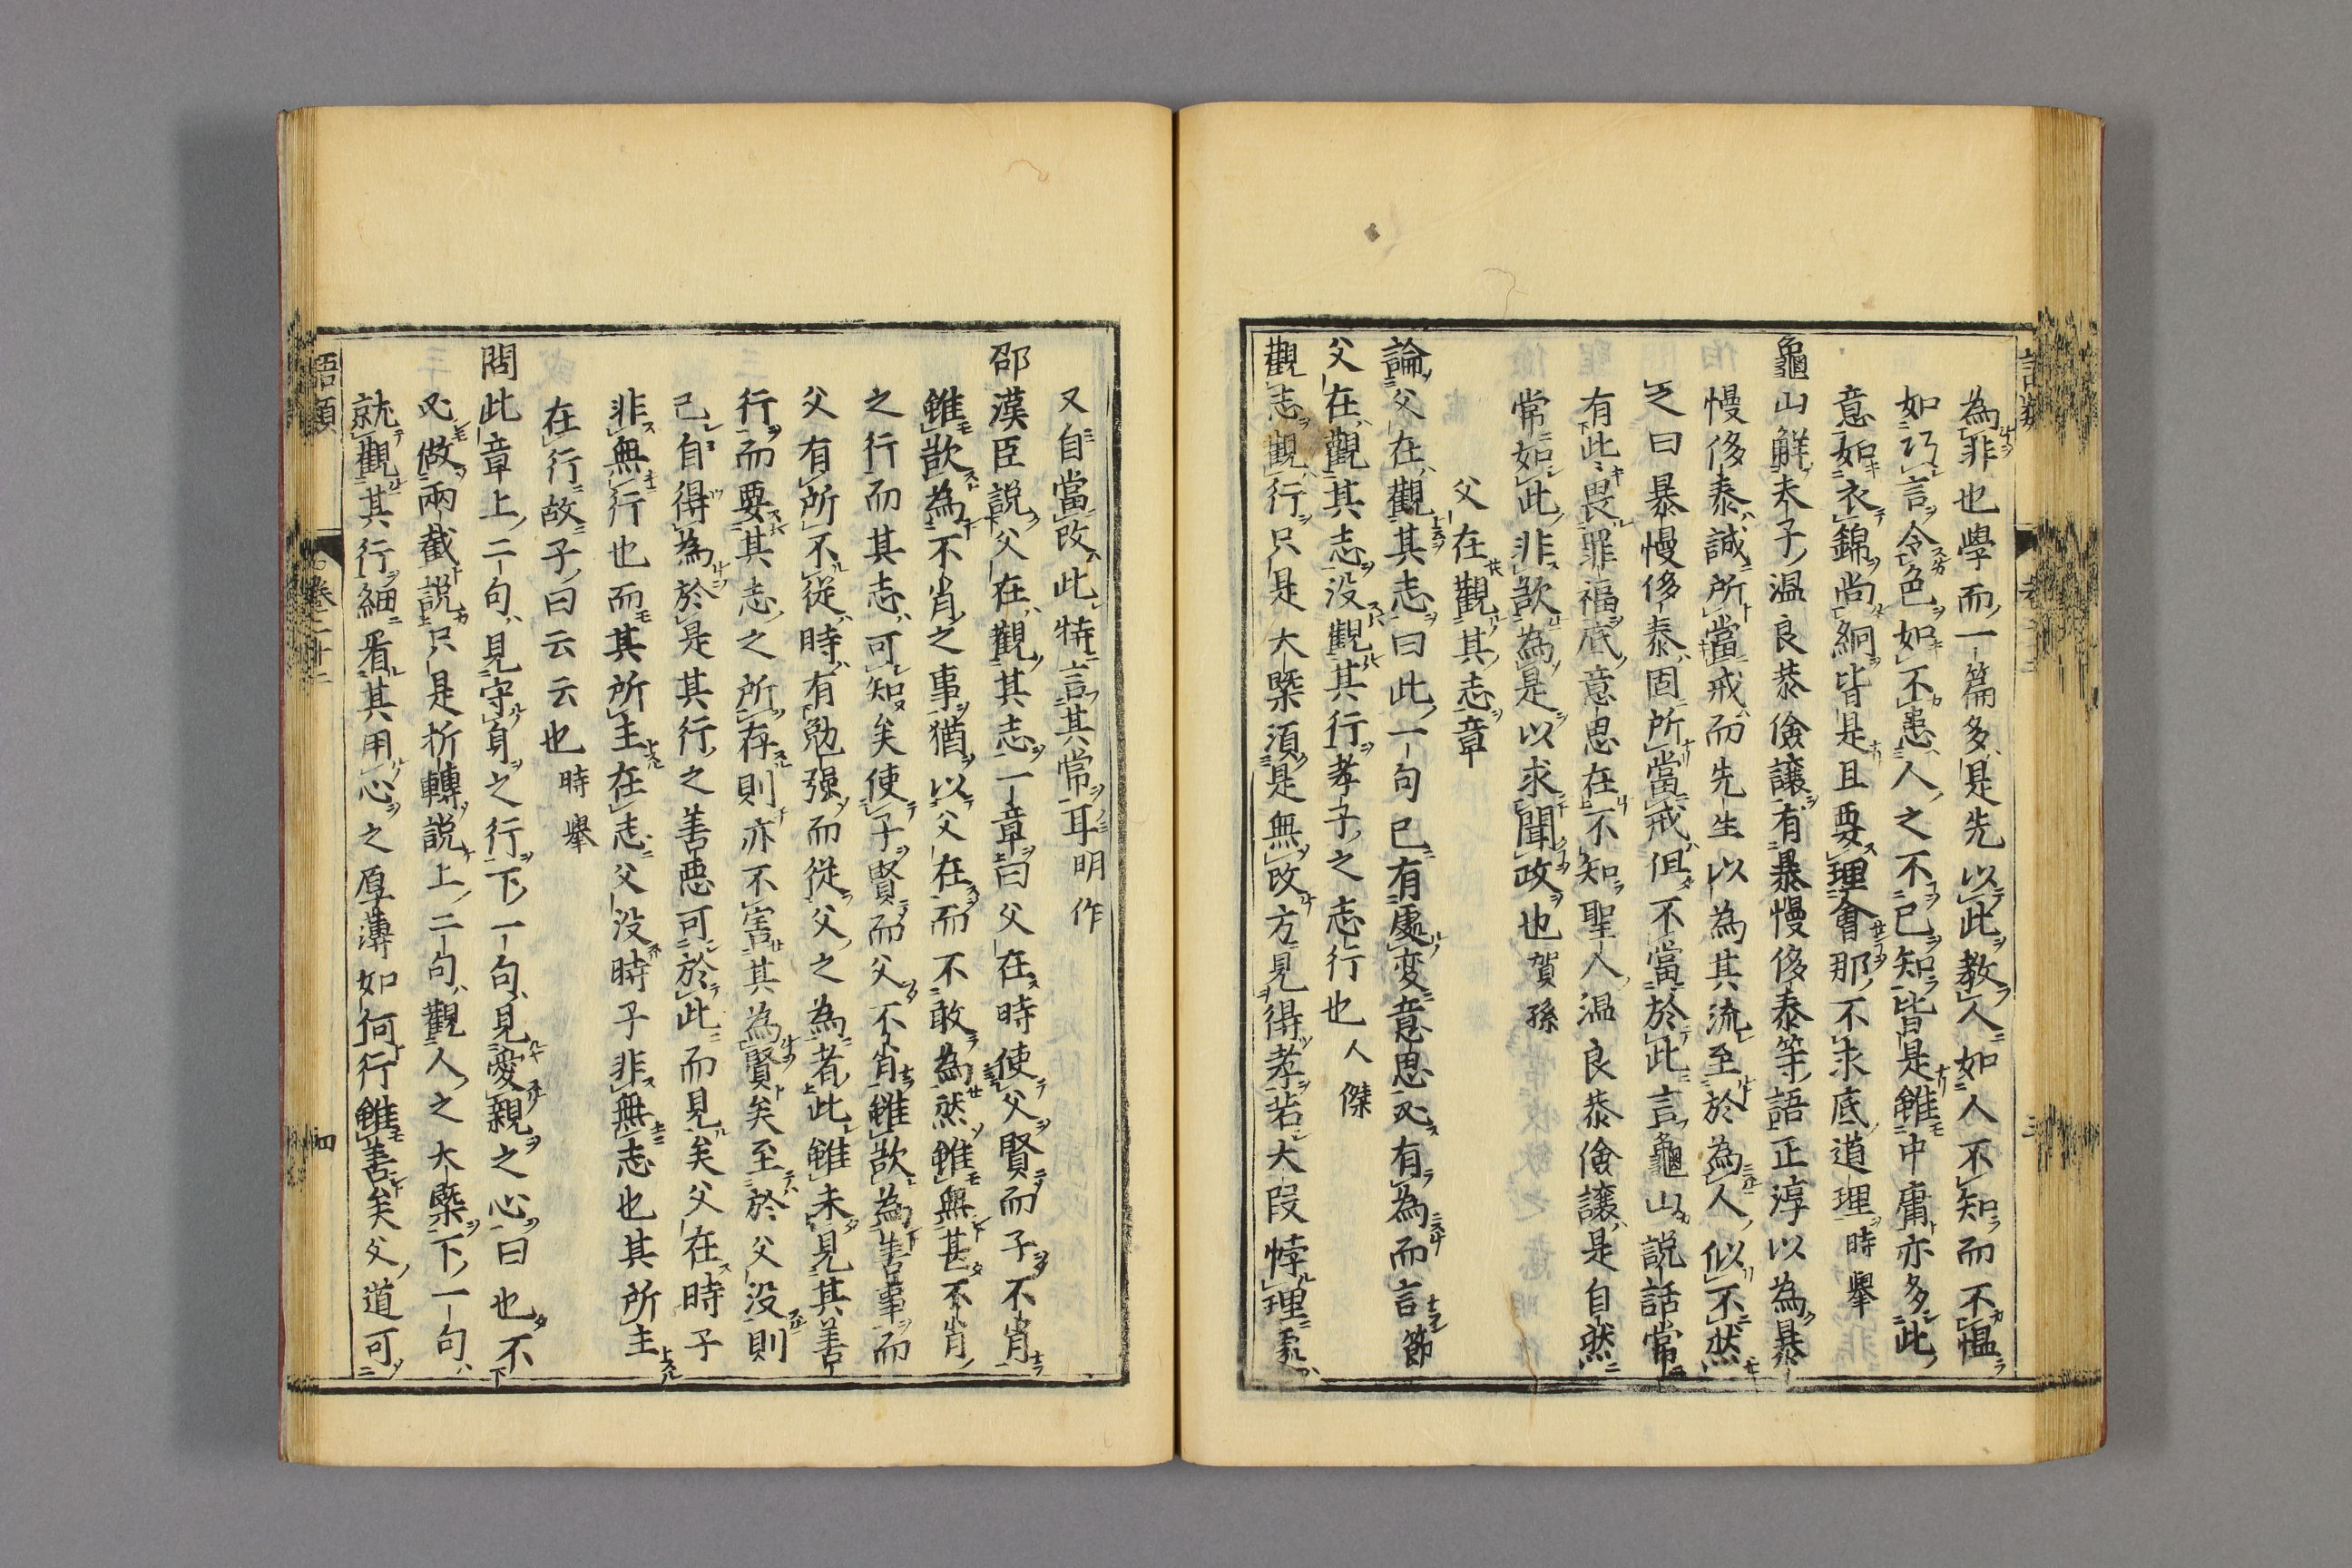 為非也學而一篇多是先以此教人如人不知而不慍
如巧言令色如不患人之不己知皆是雖中庸亦多此
意如衣錦尚絅皆是且要理會那不求底道理時舉
龜山解夫子溫良恭儉讓有暴慢侈泰等語正淳以為暴
慢侈泰誠所當戒而先生以為其流至於為人似不然
之曰暴慢侈泰固所當戒但不當於此言龜山說話常
有此畏罪福底意思在不知聖人溫良恭儉讓是自然
常如此非欲為是以求聞政也賀孫
父在觀其志章
論父在觀其志曰此一句已有處變意思必有為而言節
父在觀其志沒觀其行孝子之志行也人傑
觀志觀行只是大槩須是無改方見得孝若大段悖理處
又自當改此特言其常耳明作
邵漢臣說父在觀其志一章曰父在時使父賢而子不肖
雖欲為不肖之事猶以父在而不敢為然雖無甚不肖
之行而其志可知矣使子賢而父不肖雖欲為善事而
父有所不從時有勉强而從父之為者此雖未見其善
行而要其志之所存則亦不害其為賢矣至於父沒則
己自得為於是其行之善惡可於此而見矣父在時子
非無行也而其所主在志父沒時子非無志也其所主
在行故子曰云云也時舉
問此章上二句見守身之行下一句見愛親之心曰也不
必做兩截說只是折轉說上二句觀人之大槩下一句
就觀其行細看其用心之厚薄如何行雖善矣父道可
語類
卷二十二
四